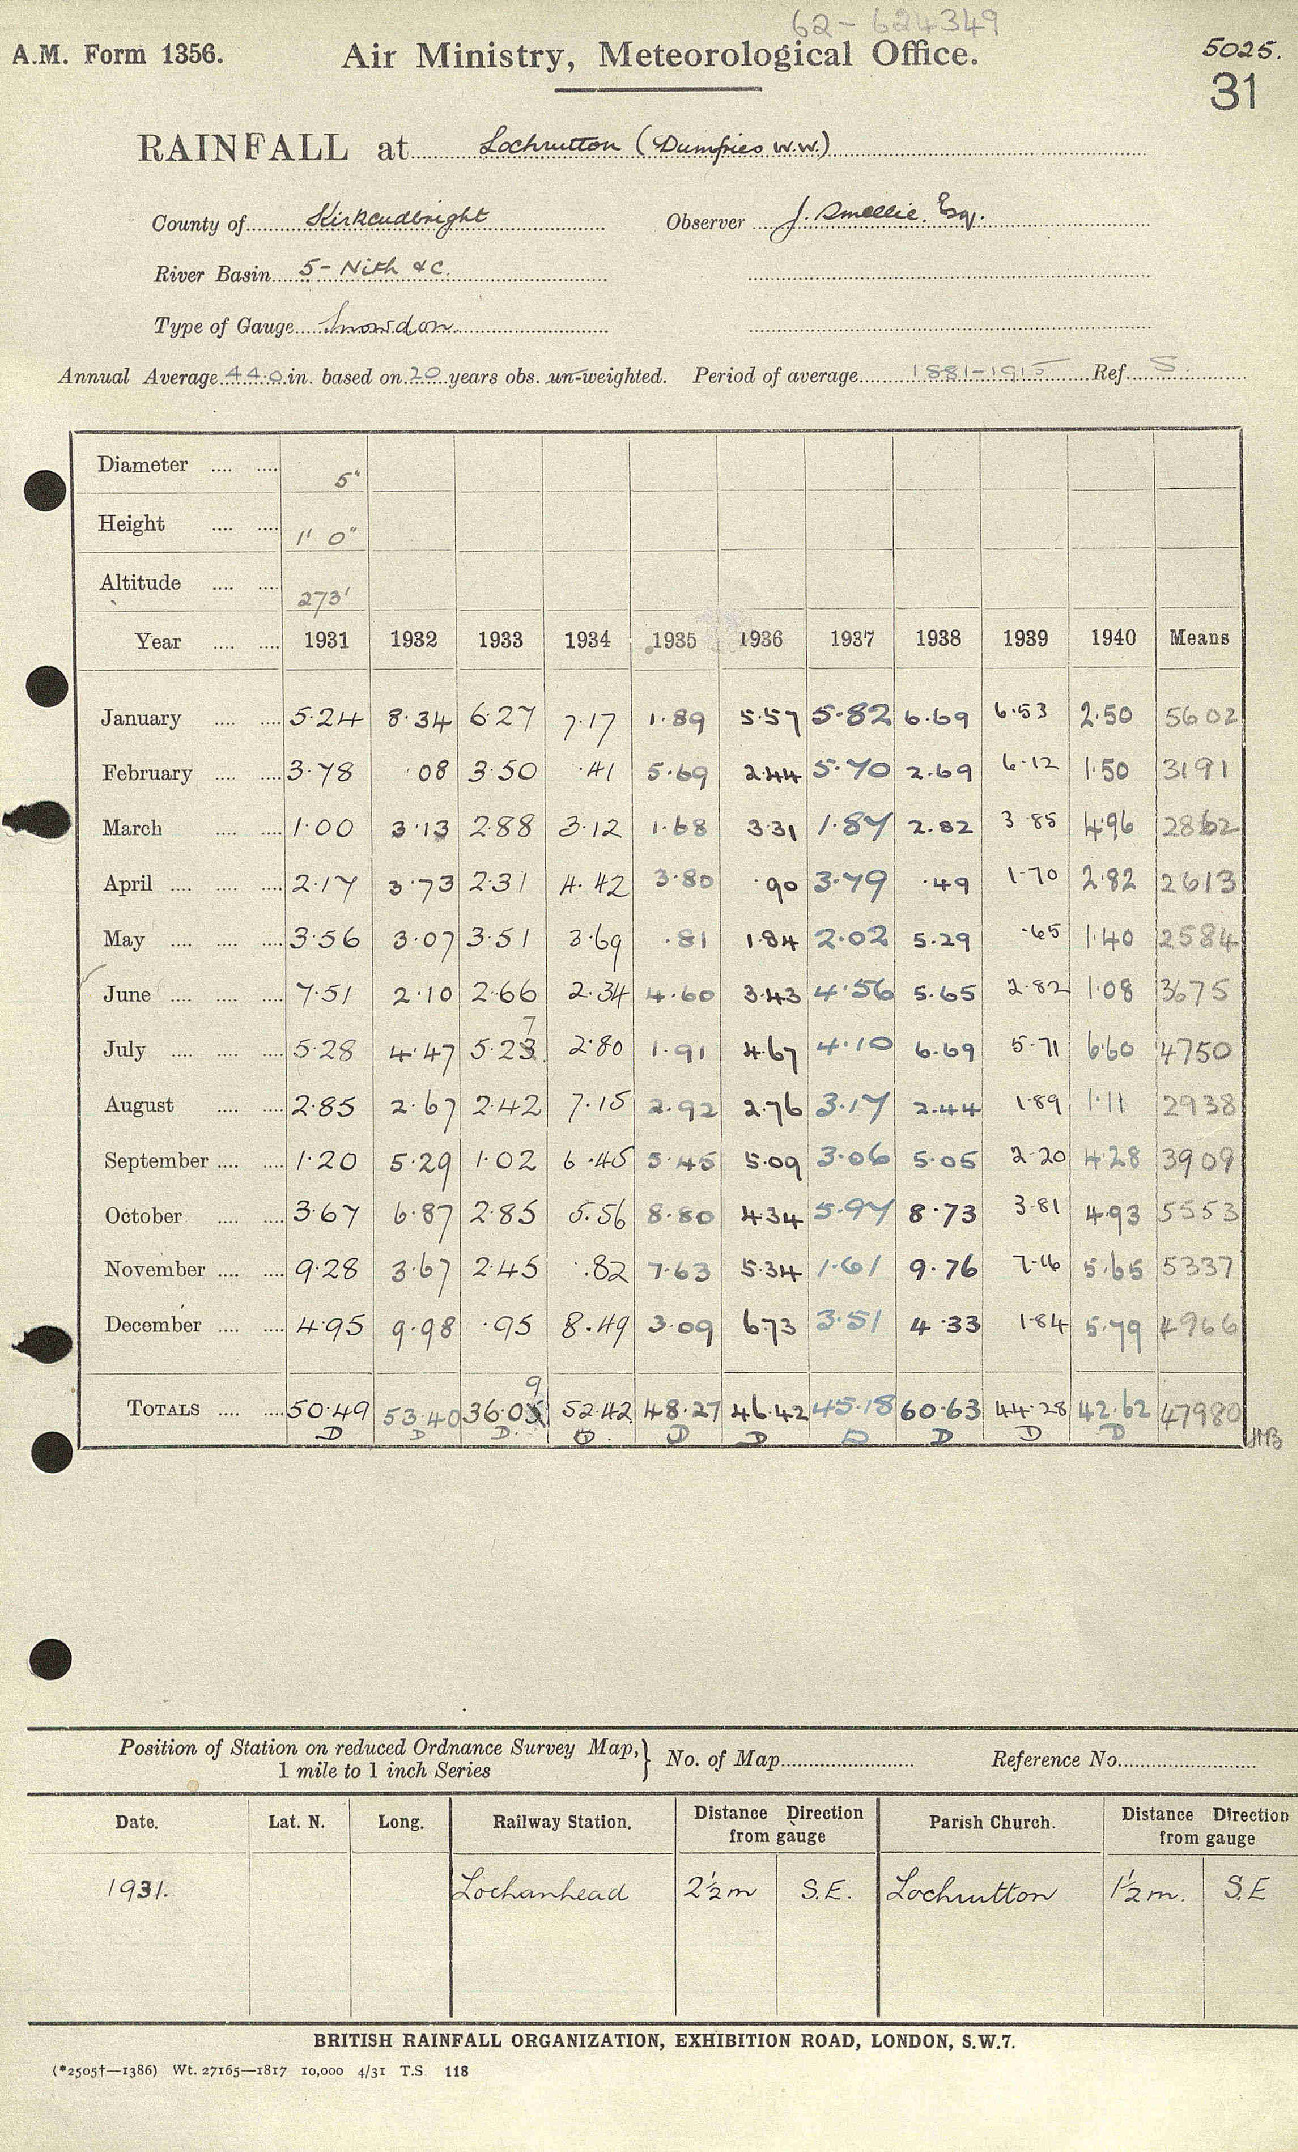 62-624349
A.M. Form 1356.
Air Ministry, Meteorological Office.
5025.
31
RAINFALL at Lochrutton (Dumfries W.W.)
County of Kirkcudbright Observer J. Smellie. Esq.
River Basin 5- Nith &c.
Type of Gauge Snowdon
Annual Average 44.0 in. based on 20 years obs. un-weighted. Period of average 1881-1915 Ref. S.
Diameter .... .... 5"
Height .... .... 1' 0"
Altitude .... .... 273'
Year .... .... 1931 1932 1933 1934 1935 1936 1937 1938 1939 1940 Means
January .... .... 5.24 8.34 6.27 7.17 1.89 5.57 5.82 6.69 6.53 2.50 5602
February .... .... 3.78 .08 3.50 .41 5.69 2.44 5.70 2.69 6.12 1.50 3191
March .... .... 1.00 3.13 2.88 3.12 1.68 3.31 1.87 2.82 3.85 4.96 2862
April .... .... .... 2.17 3.73 2.31 4.42 3.80 .90 3.79 .49 1.70 2.82 2613
May .... .... .... 3.56 3.07 3.51 3.69 .81 1.84 2.02 5.29 .65 1.40 2584
June .... .... .... 7.51 2.10 2.66 2.34 4.60 3.43 4.56 5.65 2.82 1.08 3675
7
July .... .... .... 5.28 4.47 5.23 2.80 1.91 4.67 4.10 6.69 5.71 6.60 4750
August .... .... 2.85 2.67 2.42 7.15 2.92 2.76 3.17 2.44 1.89 1.11 2938
September .... .... 1.20 5.29 1.02 6.45 5.45 5.09 3.06 5.05 2.20 4.28 3909
October .... .... 3.67 6.87 2.85 5.56 8.80 4.34 5.97 8.73 3.81 4.93 5553
November .... .... 9.28 3.67 2.45 .82 7.63 5.34 1.61 9.76 7.16 5.65 5337
December .... .... 4.95 9.98 .95 8.49 3.09 6.73 3.51 4.33 1.84 5.79 4966
9
TOTALS .... .... 50.49 53.40 36.05 52.42 48.27 46.42 45.18 60.63 44.28 42.62 47980
D D D. D D D D D D D JMB
Position of Station on reduced Ordnance Survey Map,} No. of Map Reference No.
1 mile to 1 inch Series
Date. Lat. N. Long. Railway Station. Distance Direction from gauge Parish Church. Distance Direction from gauge
1931. Lochanhead 2½m S.E. Lochrutton 1½m. S.E
BRITISH RAINFALL ORGANIZATION, EXHIBITION ROAD, LONDON, S.W.7.
(*2505†—1386) Wt. 27165—1817 10,000 4/31 T.S 118